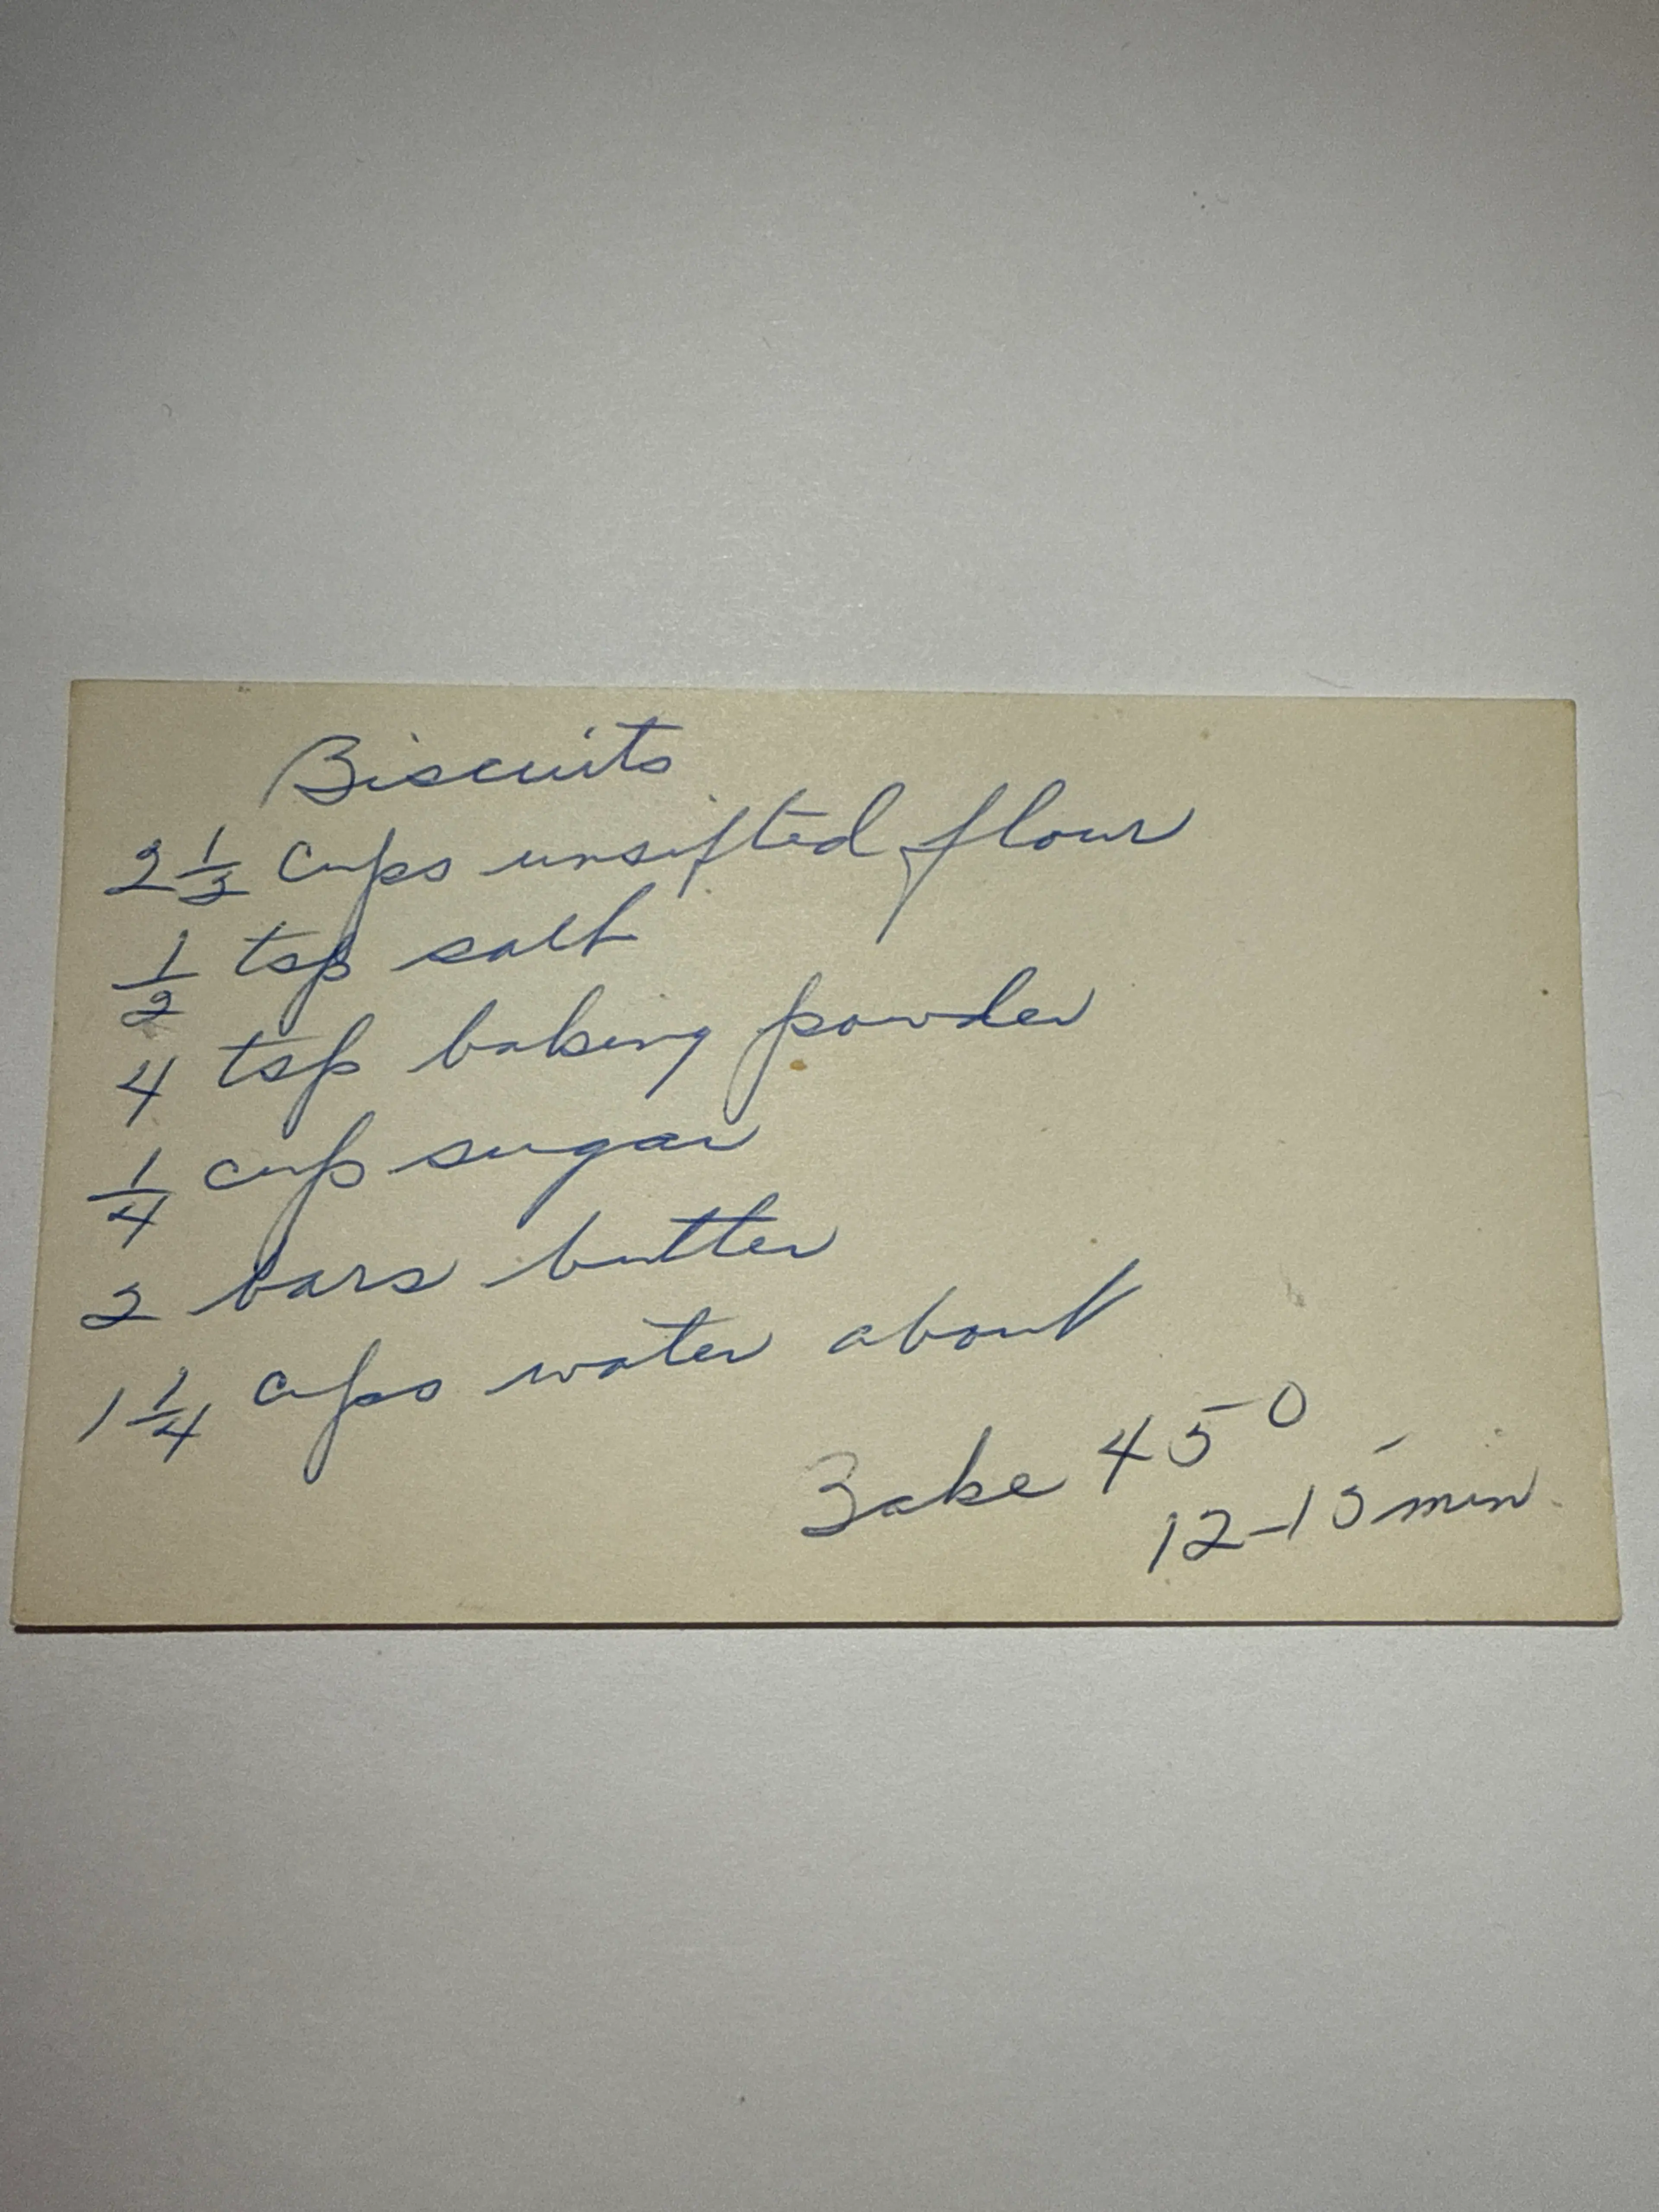 Biscuits
2 1/2 cups unsifted flour
1/2 tsp salt
4 tsp baking powder
1/4 cup sugar
2 bars butter
1 1/4 cups water about
Bake 450
12-15 min